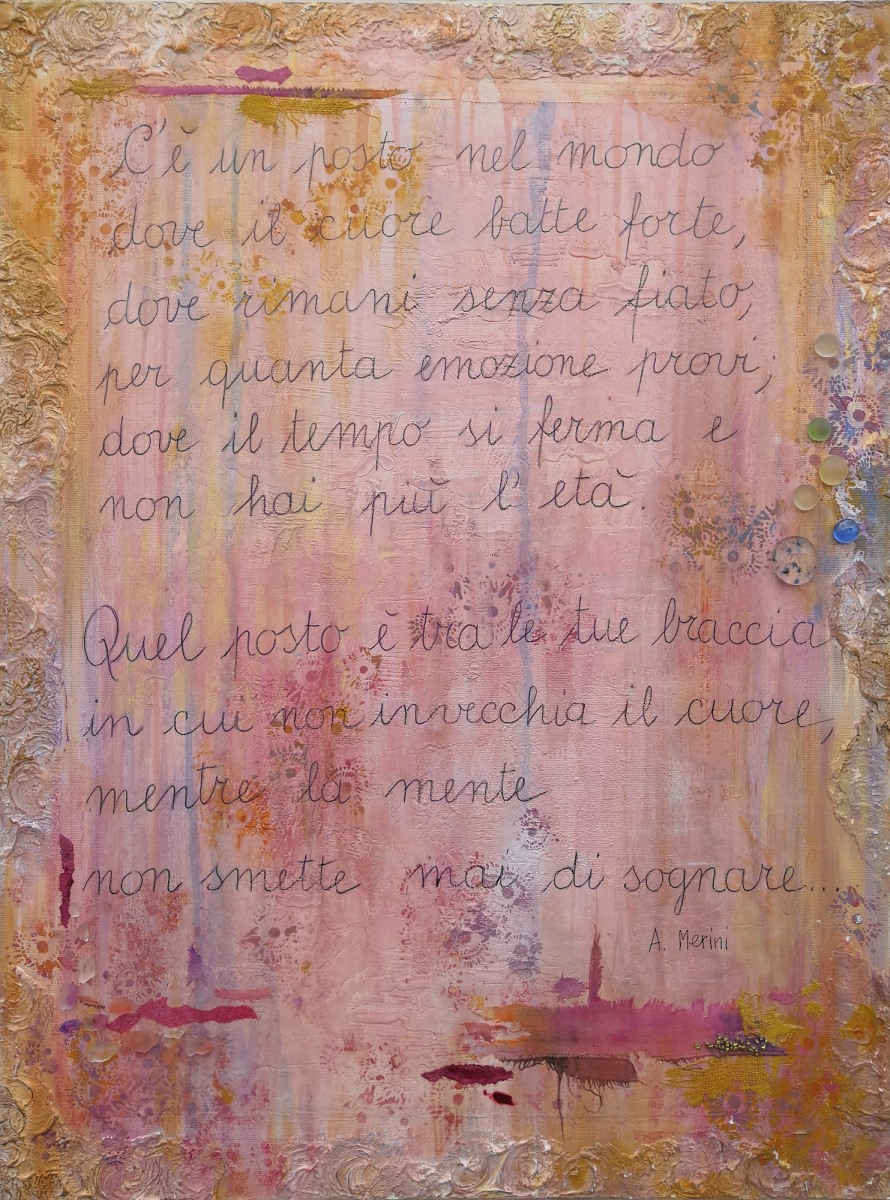 C'è un posto nel mondo
dove il cuore batte forte,
dove rimani senza fiato,
per quanta emozione provi;
dove il tempo si ferma e
non hai più l'età.
Quel posto è tra le tue braccia
in cui non invecchia il cuore,
mentre la mente
non smette mai di sognare...
A. Merini